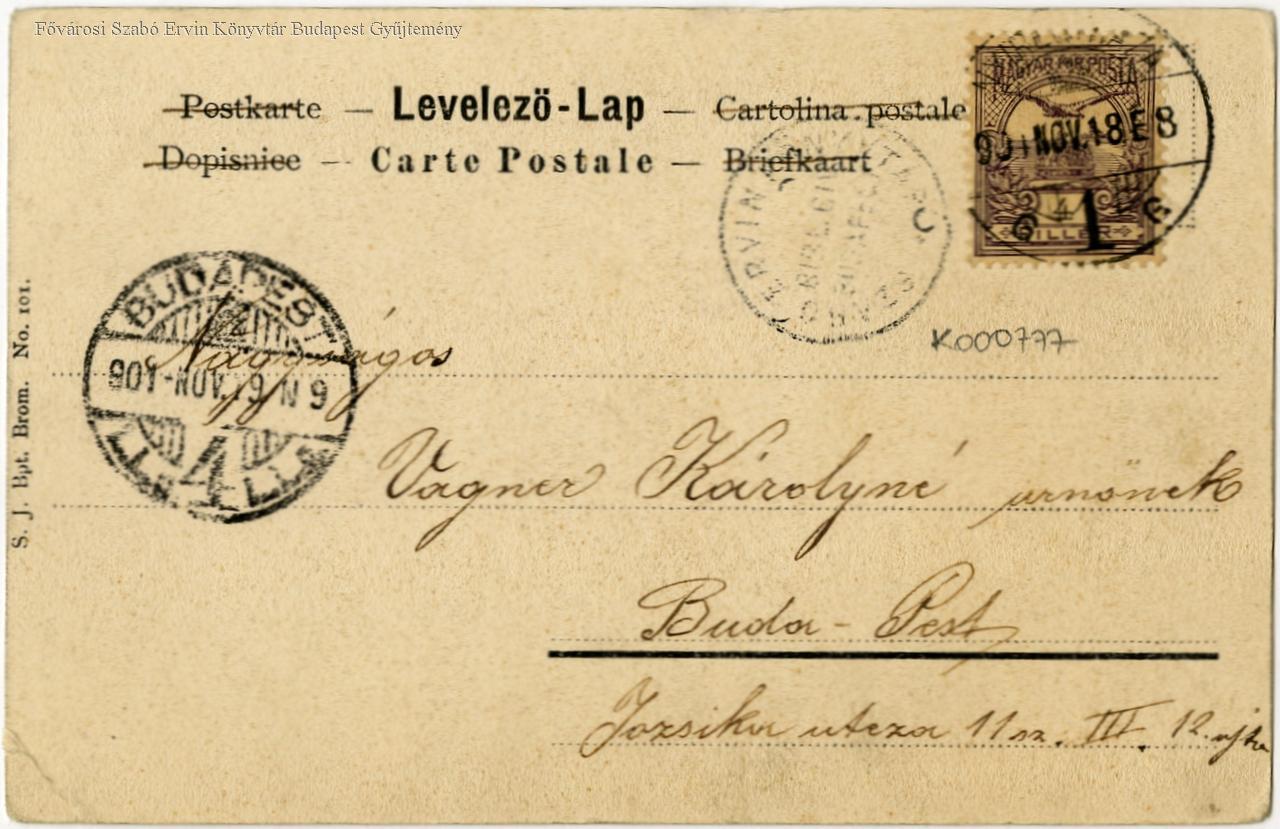 Fővárosi Szabó Ervin Könyvtár Budapest Gyűjtemény
Postkarte — Levelező-Lap — Cartolina postale
Dopisnice — Carte Postale — Briefkaart
MAGYAR KIR. POSTA
901 NOV. 18 E 8
4
FILLÉR
1
ERVIN SZABÓ
K000777
BUDAPEST
901-NOV. 19 N 9
4
S. J. Bpt. Brom. No. 101.
Nagyságos
Vagner Károlyné urnőnek
Buda-Pest
Jozsika utcza 11 sz. III. 12.